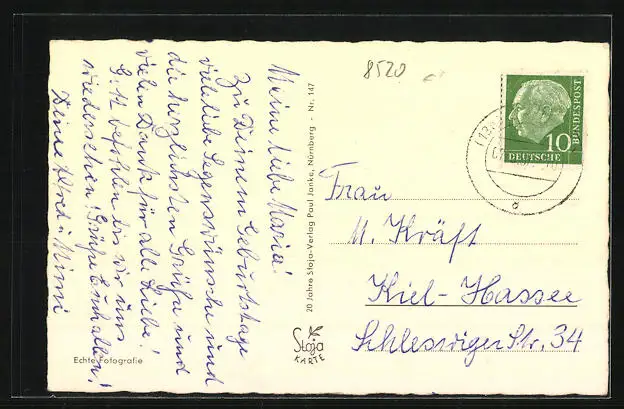 Meine liebe Maria!
Zu Deinem Geburtstage
viele liebe Segenswünsche und
die herzlichsten Grüße und
vielen Dank für alle Liebe!
Gott befohlen bis wir uns
wiedersehen! Grüße Euch allen!
Deine Mimi
Echte Fotografie
20 Jahre Stoja-Verlag Paul Janke, Nürnberg - Nr. 147
Stoja
KARTE
8520
10
DEUTSCHE
BUNDESPOST
Frau
M. Kräft
Kiel-Hassee
Schleswiger Str. 34